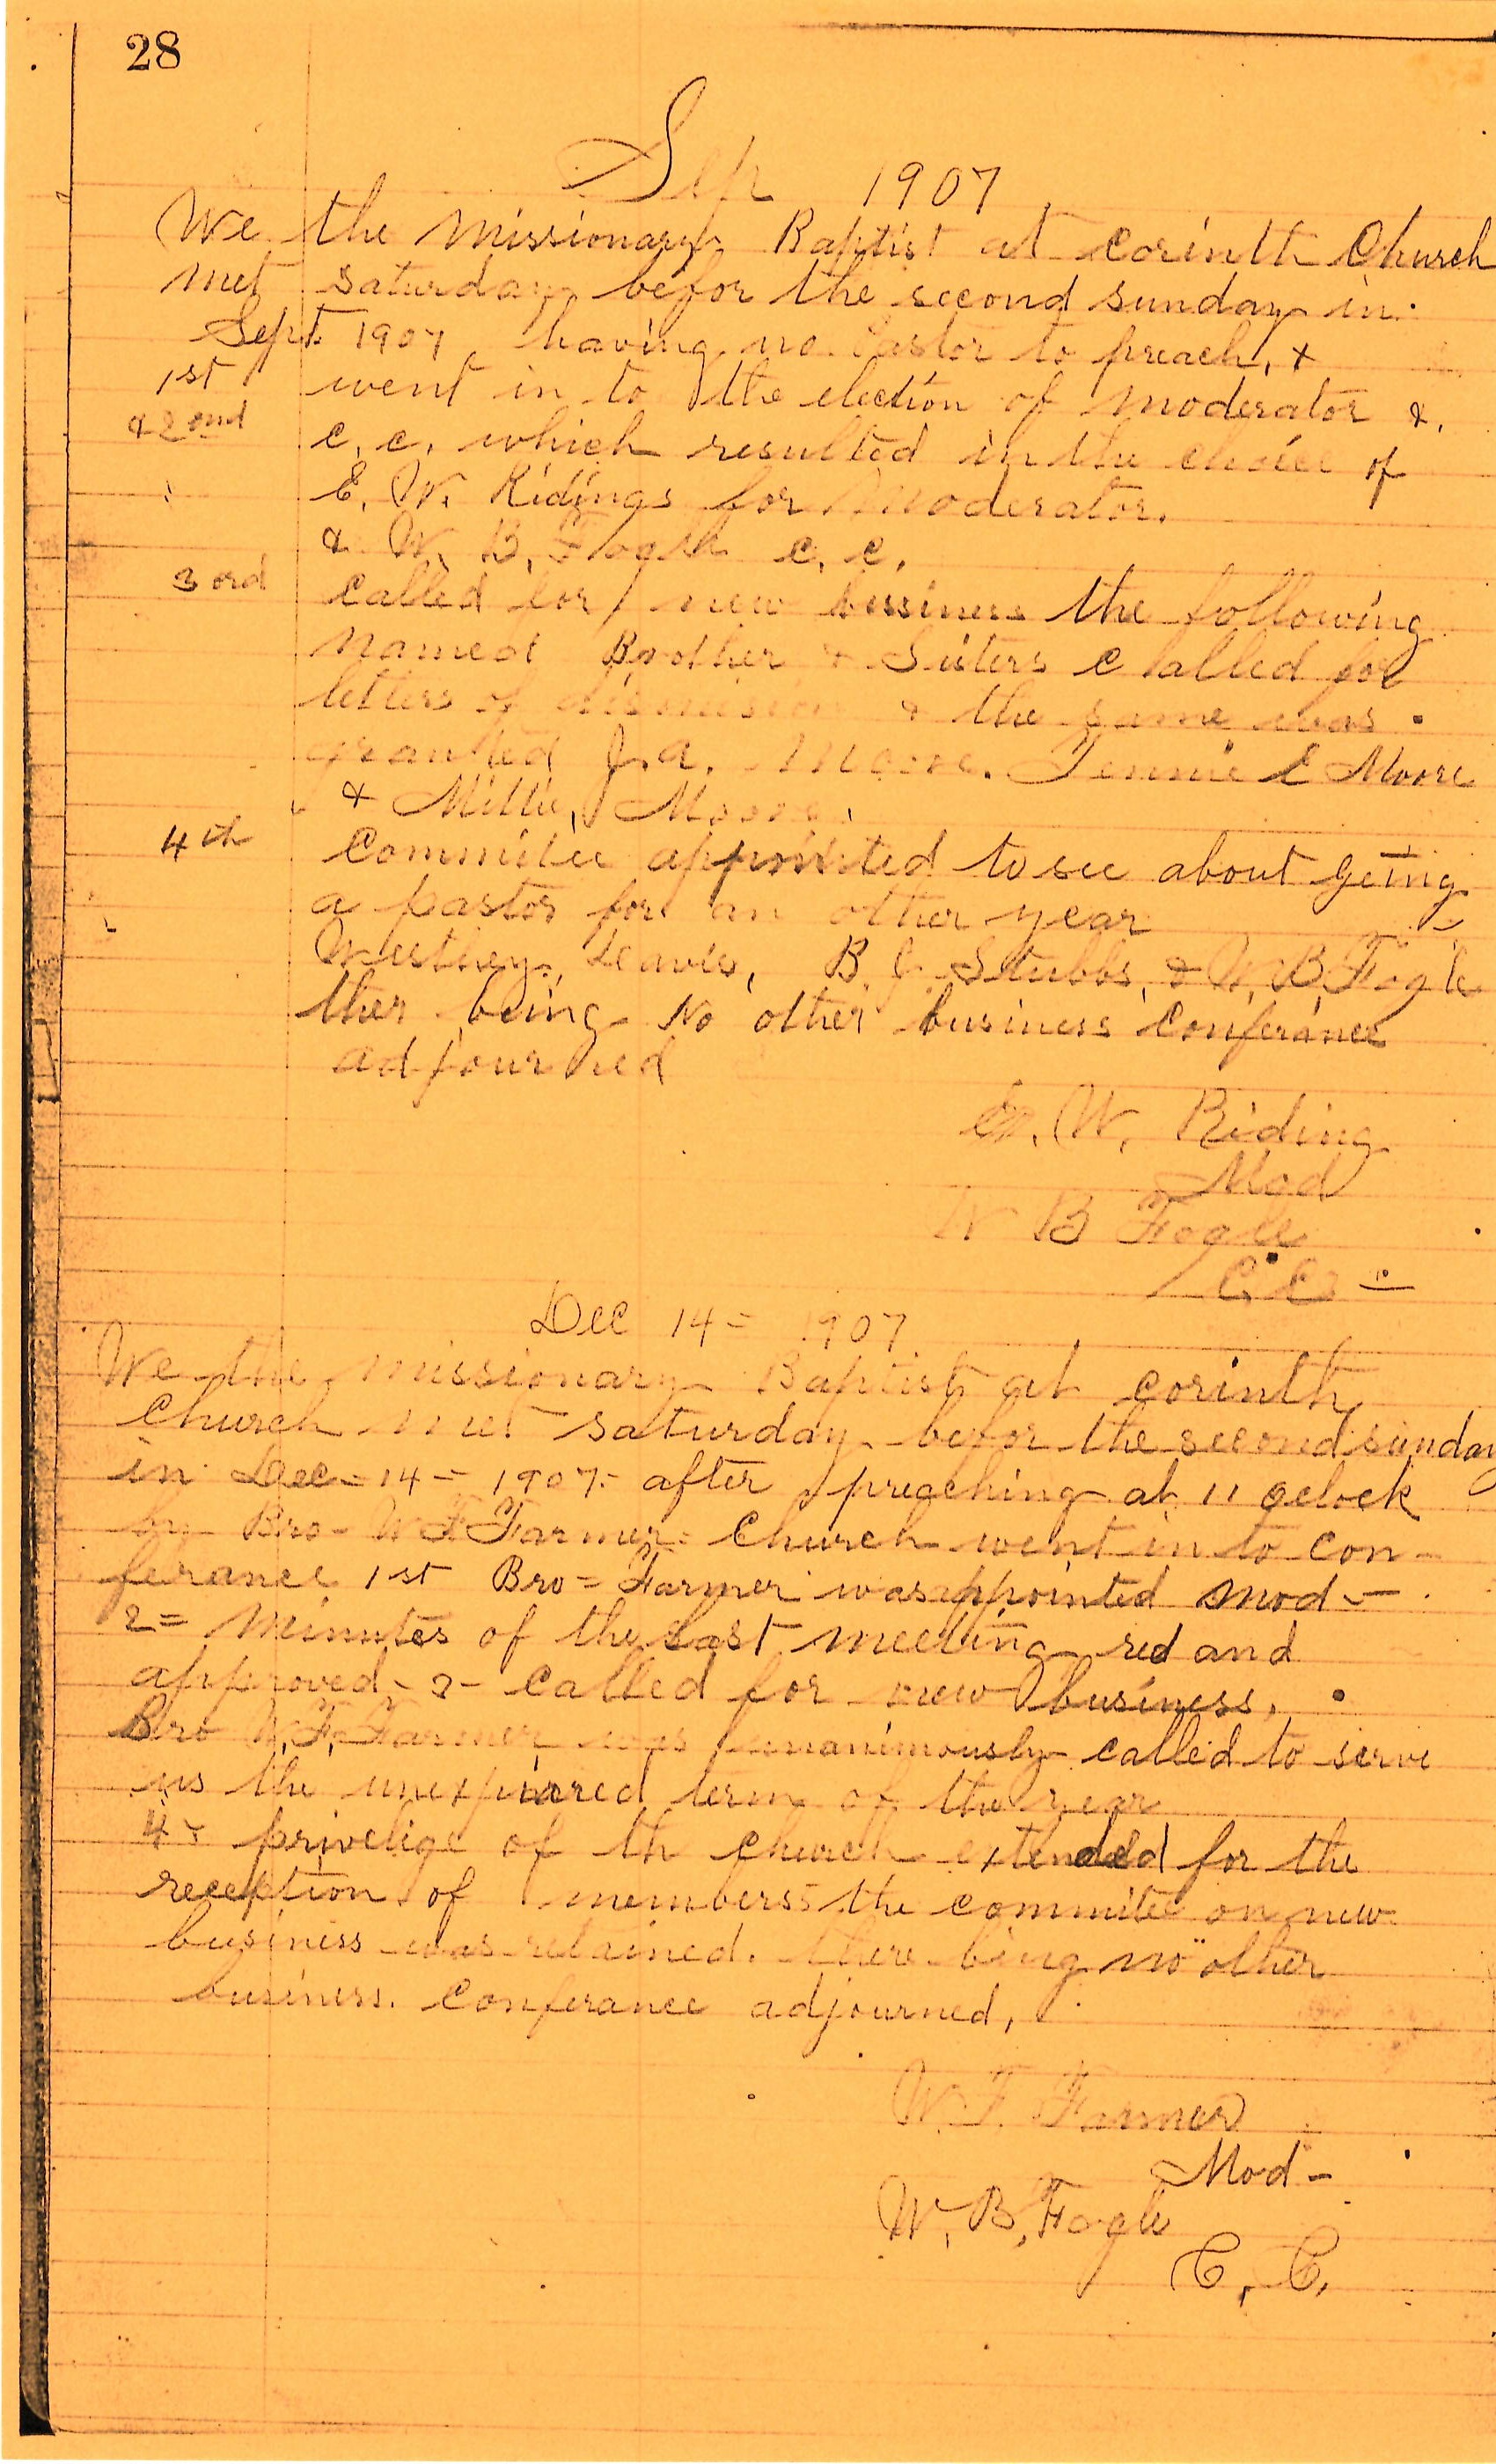 28
Sep 1907
We the Missionary Baptist at Corinth Church
met saturday befor the second sunday in
Sept. 1907 having no Pastor to preach, +
1st went in to the election of moderator &
& 2 ond c. c. which resulted in the choice of
E. W. Ridings for Moderator.
& W. B. Fogle c. c.
3 ord Called for new bissiness the following
named Brother + Sisters c alled for
letters of dismission + the same was
granted J. A. Moore. Jennie E Moore
+ Millie, Moore.
4th Commitee appointed to see about geting
a pastor for an other year
B. J. Stubbs, & W. B. Fogle
ther being No other business Conferance
adjourned
E. W. Riding
Mod
W B Fogle
C. C. =
Dec 14 = 1907
We the missionary Baptist at Corinth
Church met saturday befor the second sunday
in Dec = 14 = 1907 = after preaching at 11 oclock
by Bro - W F Farmer = Church went in to con-
ferance 1st Bro = Farmer was appointed mod -
2 = Minutes of the Last meeting red and
approved - 3 - Called for new business,
Bro W. F. Farmer was unanimously called to serve
us the unexpiared term of the year
4 - privelige of th church extended for the
reception of members = the commitee on new
business was retained. there being no other
business. Conferance adjourned,
W. F. Farmer
Mod -
W. B. Fogle
C. C.